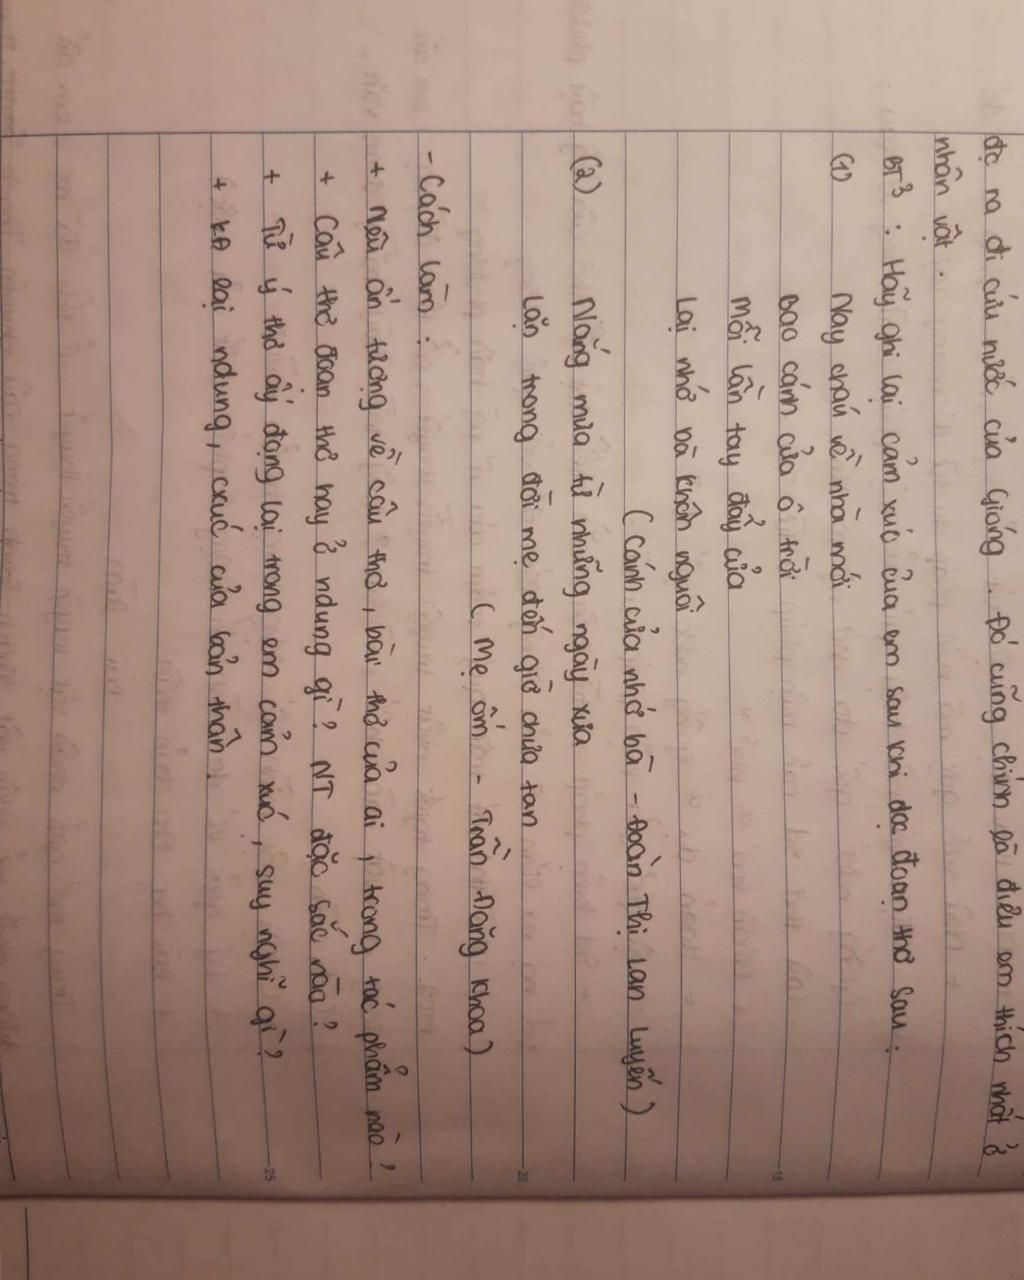 đc ra đi cứu nước của Gióng. Đó cũng chính là điều em thích nhất ở
nhân vật.
BT3: Hãy ghi lại cảm xúc của em sau khi đọc đoạn thơ sau:
(1) Nay cháu về nhà mới
Bao cánh cửa ô trời
Mỗi lần tay đẩy cửa
Lại nhớ bà khôn nguôi
(Cánh cửa nhớ bà - Đoàn Thị Lan Luyến)
(2) Nắng mưa từ những ngày xưa
Lặn trong đời mẹ đến giờ chưa tan
(Mẹ ốm - Trần Đăng Khoa)
- Cách làm:
+ Nêu ấn tượng về câu thơ, bài thơ của ai, trong tác phẩm nào?
+ Câu thơ đoạn thơ hay ở ndung gì? NT đặc sắc nào?
+ Từ ý thơ ấy đọng lại trong em cảm xúc, suy nghĩ gì?
+ KĐ lại ndung, cxúc của bản thân.
15
20
25